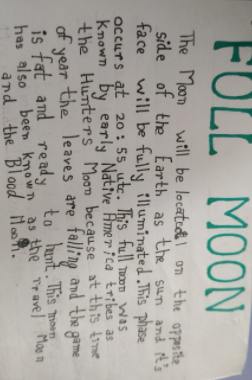 FULL MOON
The Moon will be located on the opposite
side of the Earth as the sun and it's
face will be fully illuminated. This phase
occurs at 20:55 utc. This full moon was
known by early Native America tribes as
the Hunters Moon because at this time
of year the leaves are falling and the game
is fat and ready to hunt. This moon
has also been known as the Travel Moon
and the Blood Moon.